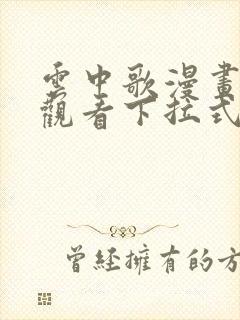 雲中歌漫畫
觀看下拉式
曾經擁有的方